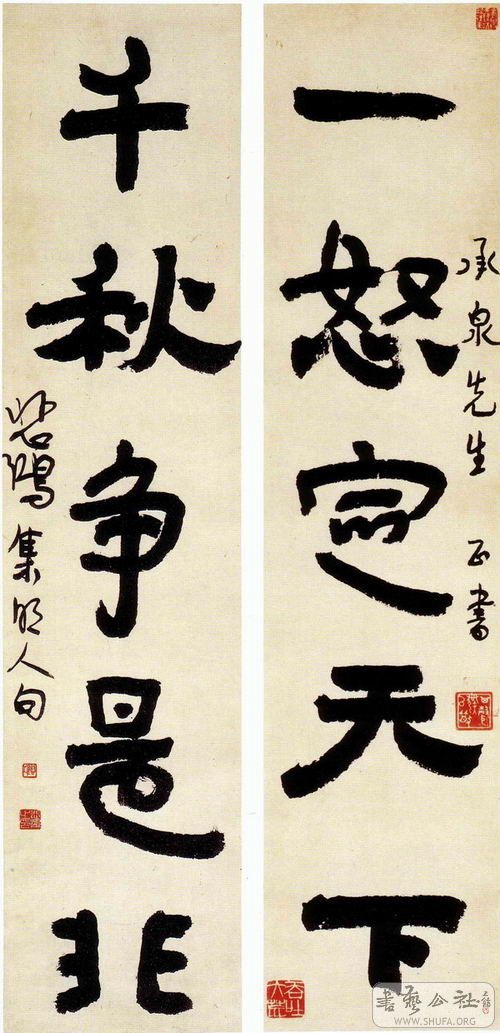 一怒定天下
承泉先生 正書
千秋争是非
悲鴻集明人句
吞吐大荒
書藝公社
WWW.SHUFA.ORG